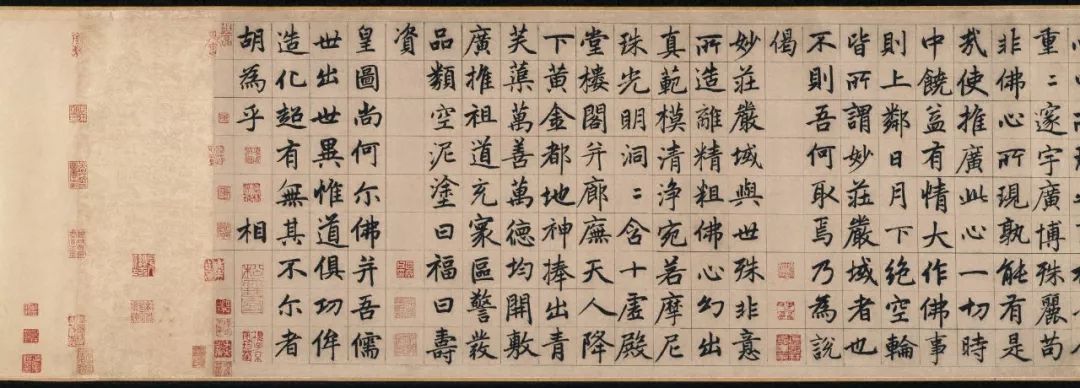 重〻邃宇廣博殊麗苟
非佛心所現孰能有是
哉使推廣此心一切時
中饒益有情大作佛事
則上鄰日月下絶空輪
皆所謂妙莊嚴域者也
不則吾何取焉乃為說
偈
妙莊嚴域與世殊非意
所造離精粗佛心幻出
真範模清淨宛若摩尼
珠光明洞〻含十虛殿
堂樓閣并廊廡天人降
下黄金都地神捧出青
芙蕖萬善萬德均開敷
廣推祖道充寰區警發
品類空泥塗曰福曰壽
資
皇圖尚何尔佛并吾儒
世出世異惟道俱功侔
造化超有無其不尔者
胡為乎 相